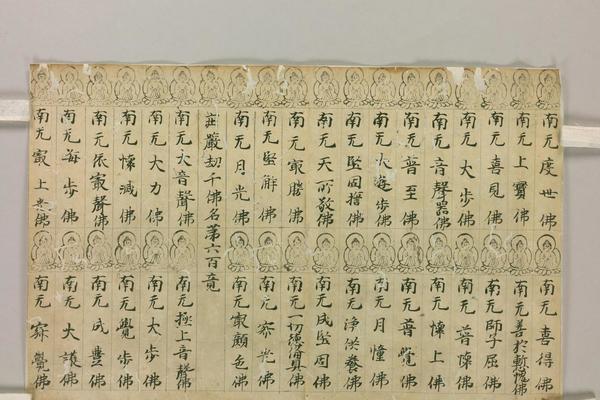 南无度世佛 南无喜得佛
南无上寶佛 南无善於慚愧佛
南无喜見佛 南无師子屈佛
南无大步佛 南无普懷佛
南无音聲器佛 南无懷上佛
南无普至佛 南无普覺佛
南无大遊步佛 南无月幢佛
南无堅固佛 南无淨供養佛
南无天所敬佛 南无成堅固佛
南无㝡勝佛 南无一切德備具佛
南无堅解佛 南无光佛
南无月光佛 南无㝡顏色佛
莊嚴劫千佛名第六百竟
南无大音聲佛 南无極上音聲佛
南无大力佛 南无大步佛
南无懷滅佛 南无覺步佛
南无依㝡聲佛 南无成豐佛
南无步佛 南无大護佛
南无㝡上佛 南无覺佛